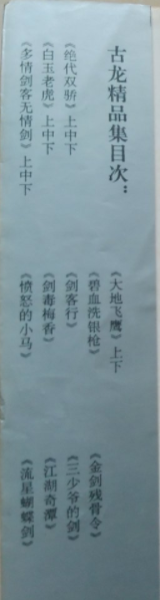 古龙精品集目次：
《绝代双骄》上中下
《白玉老虎》上中下
《多情剑客无情剑》上中下
《大地飞鹰》上下
《碧血洗银枪》
《剑客行》
《剑毒梅香》
《愤怒的小马》
《金剑残骨令》
《三少爷的剑》
《江湖奇谭》
《流星蝴蝶剑》